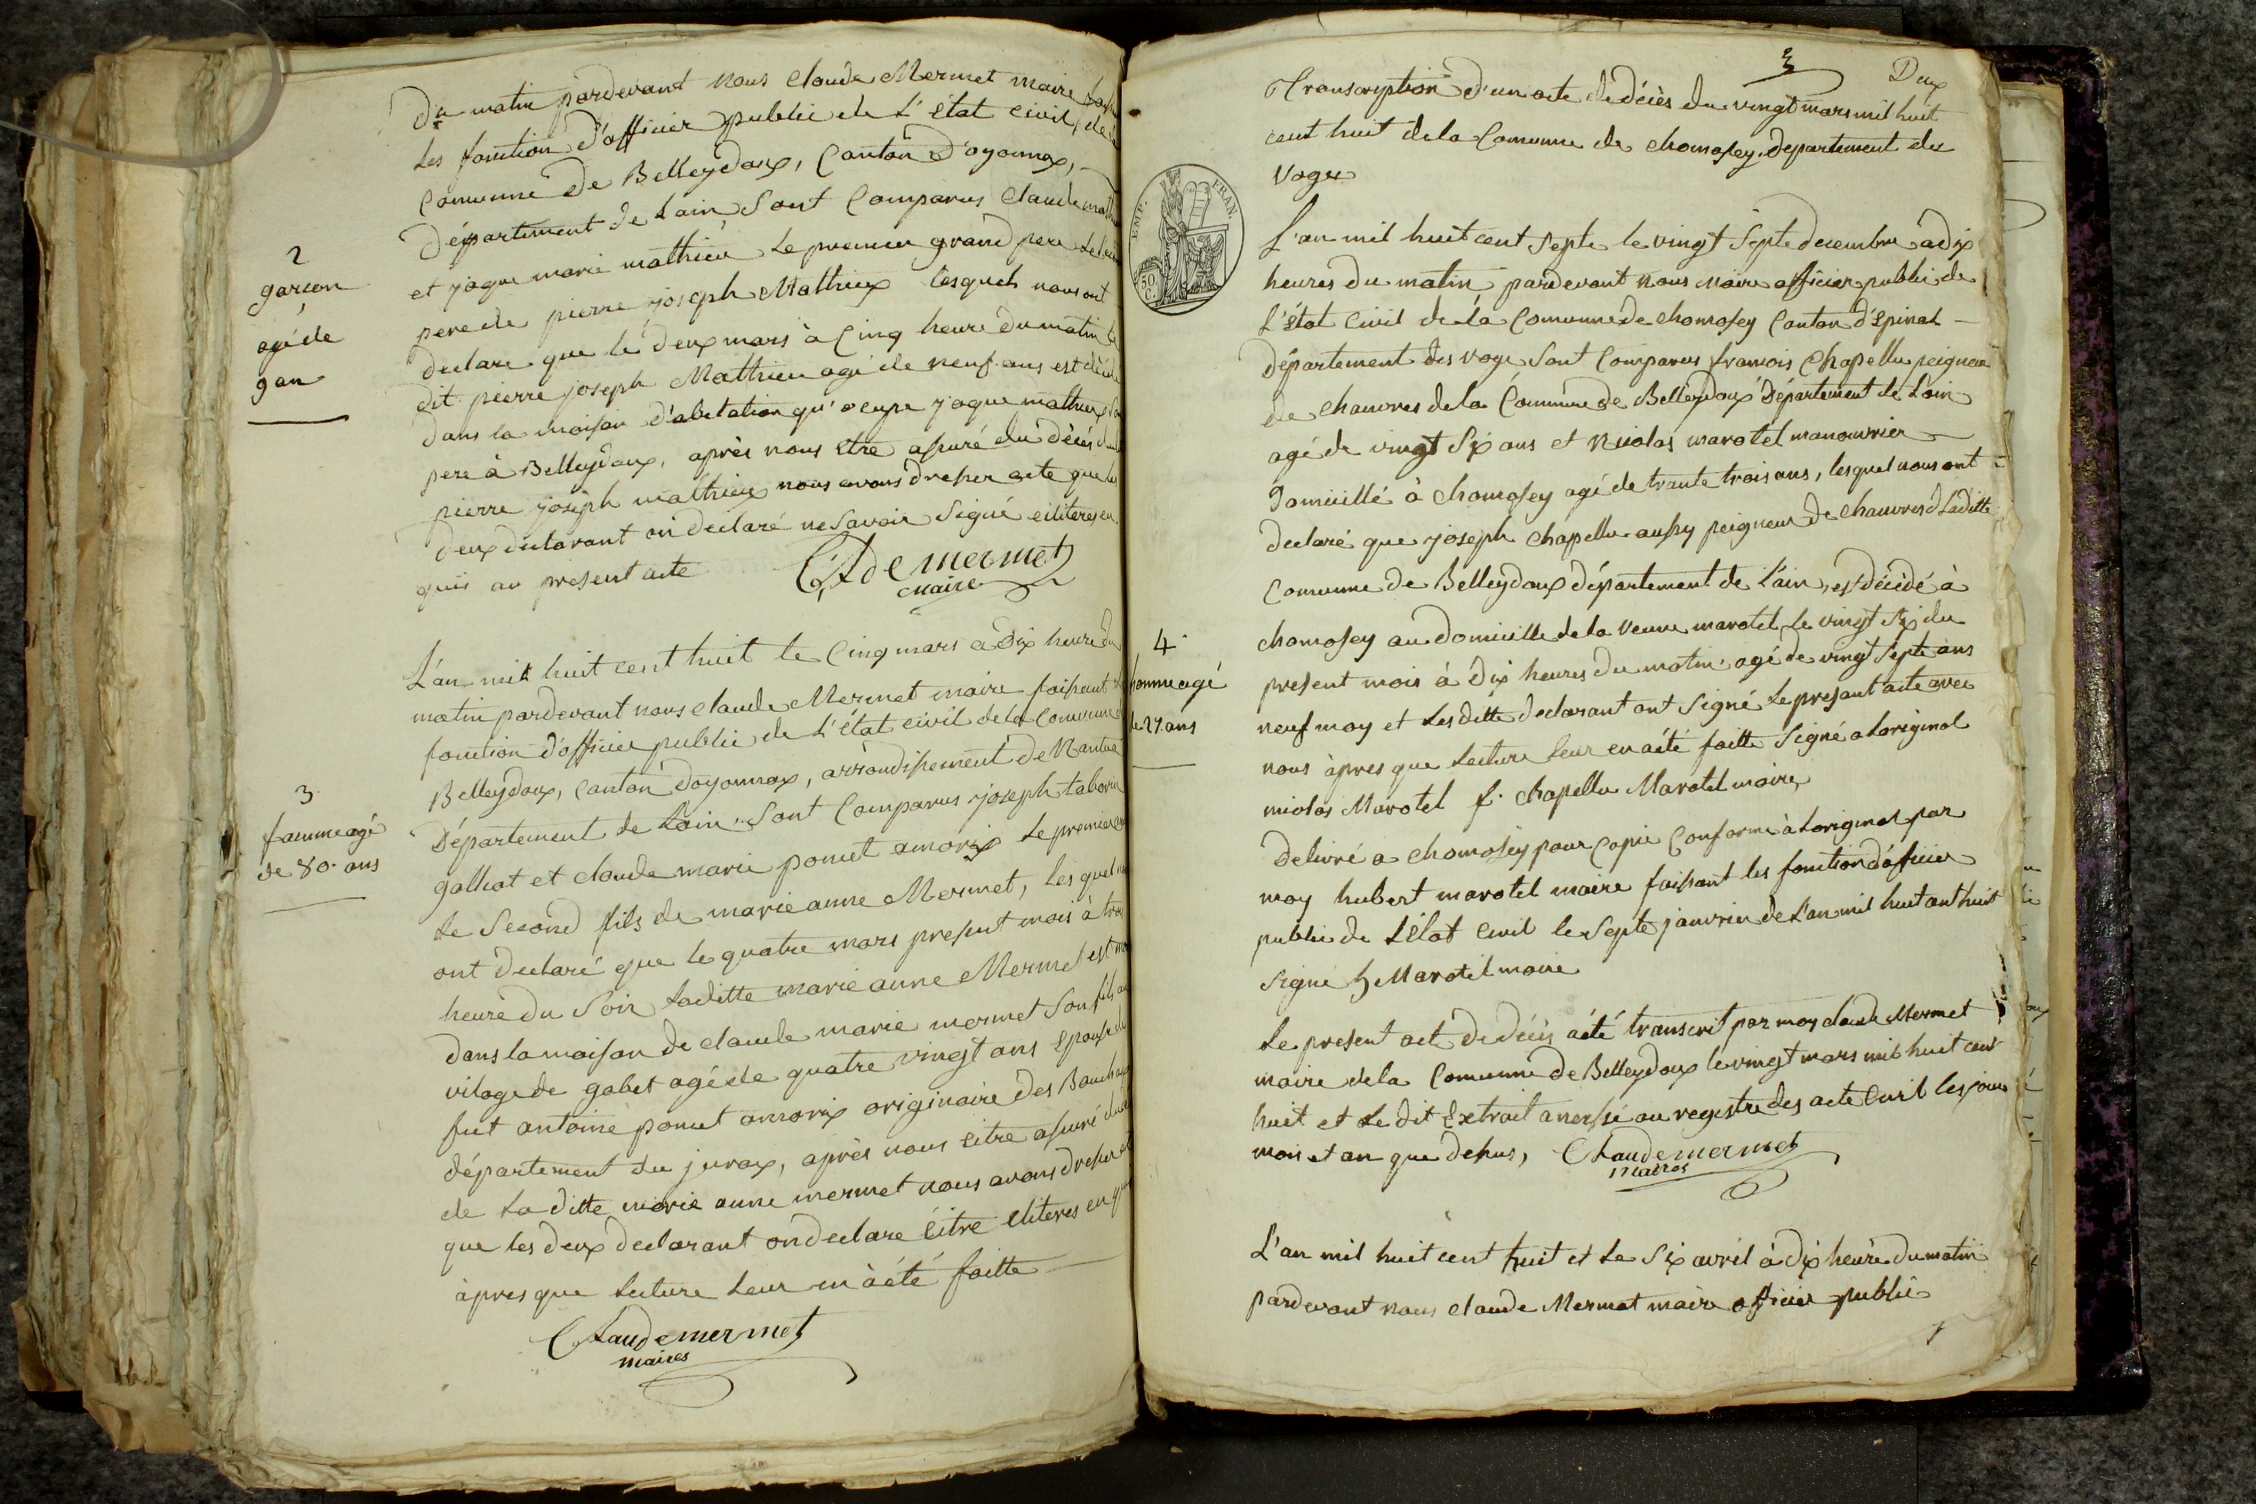 du matin pardevant nous Claude Mermet maire
les fonction d'officier public de L'état civil de
Comunne de Belleydoux, Canton D'oyonnax,
département de Lain Sont Comparus Claude
et jaque marie mathieu Le premier grand pere Le
2
garcon
agé de
9 an
pere de pierre joseph Mathieux lesquels nous ont
declare que le deux mars à Cinq heure du matin
dit pierre joseph Mathieu agé de neuf ans est
dans la maison d'abitation qu'ocupe jaque mathieux
pere à Belleydoux, après nous etre assuré du décès
pierre joseph mathieux nous avons dresser acte que les
deux declarant on declaré ne Savoir Signé
quis au present acte
Cl,de mermet
maire
L'an mil huit cent huit le Cinq mars a dix heure du
matin pardevant nous claude Mermet maire faisant
fonction d'officier public de L'état civil de la Comunne
Belleydoux, Canton doyonnax, arrondissement de Nantua
3
famme agé
de 80. ans
Département de Lain Sont Comparus joseph tabourin
galliat et claude marie poncet amorix Le premier
Le Second fils de marie anne Mermet, Les quel
ont declaré que le quatre mars present mois à
heure du Soir Laditte marie anne Mermet est
dans la maison de claude marie mermet Son fils
vilage de gobet agé de quatre vingt ans Epouse
fut antoine poncet amorix originaire des Bouchoux
département du jurax, après nous eitre assuré
de La ditte marie anne mermet nous avons dresser
que les deux declarant on declaré éitre eliteres en
àpres que Lecture Leur en à été faitte
Claude mermet
maires
3 Deux
Transcription d'un acte de décès du vingt mars mil huit
cent huit de la Comunne de chomosey. departement des
Voges
EMP. FRAN.
50 C.
L'an mil huit cent Septe le vingt Septe decembre a dix
heures du matin pardevant nous maire officier public de
L'état Civil de la Comunne de chomosey Canton d'épinal
département des voge Sont Comparus francois Chapellu peigneur
de chanvres de la Comunne de Belleydoux Département de Lain
agé de vingt Six ans et Nicolas marotel manouvrier
domicillé à chomosey agé de trante trois ans, lesquel nous ont
declaré que joseph chapellu aussy peigneur de chanvres d Laditte
Comunne de Belleydoux département de L'ain, est décédé à
4
homme agé
de 27. ans
chomosey au domicille de la veuve marotel Le vingt Six du
present mois à dix heures du matin. agé de vingt Septe ans
neuf moy et Lesditte declarant ont Signé Le presant acte avec
nous àpres que Lecture Leur en a été faitte Signé a Loriginal
nicolas Marotel f. chapellu Marotel maire,
Delivré a chomosey pour Copie Conforme à Loriginal par
moy hubert marotel maire faissant les fonction d'officier
public de L'état Civil le Septe janvrier de L'an mil huit cent huit
Signé h Marotel maire
Le present act de décès a été transcrit par moy claude Mermet
maire de la Comunne de Belleydoux le vingt mars mil huit cent
huit et Le dit Extrait anexsé au registre des acte Civil les jour
mois et an que dessus, Claude mermet
maires
L'an mil huit cent huit et Le Six avril à dix heure du matin
pardevant nous claude Mermet maire officier public